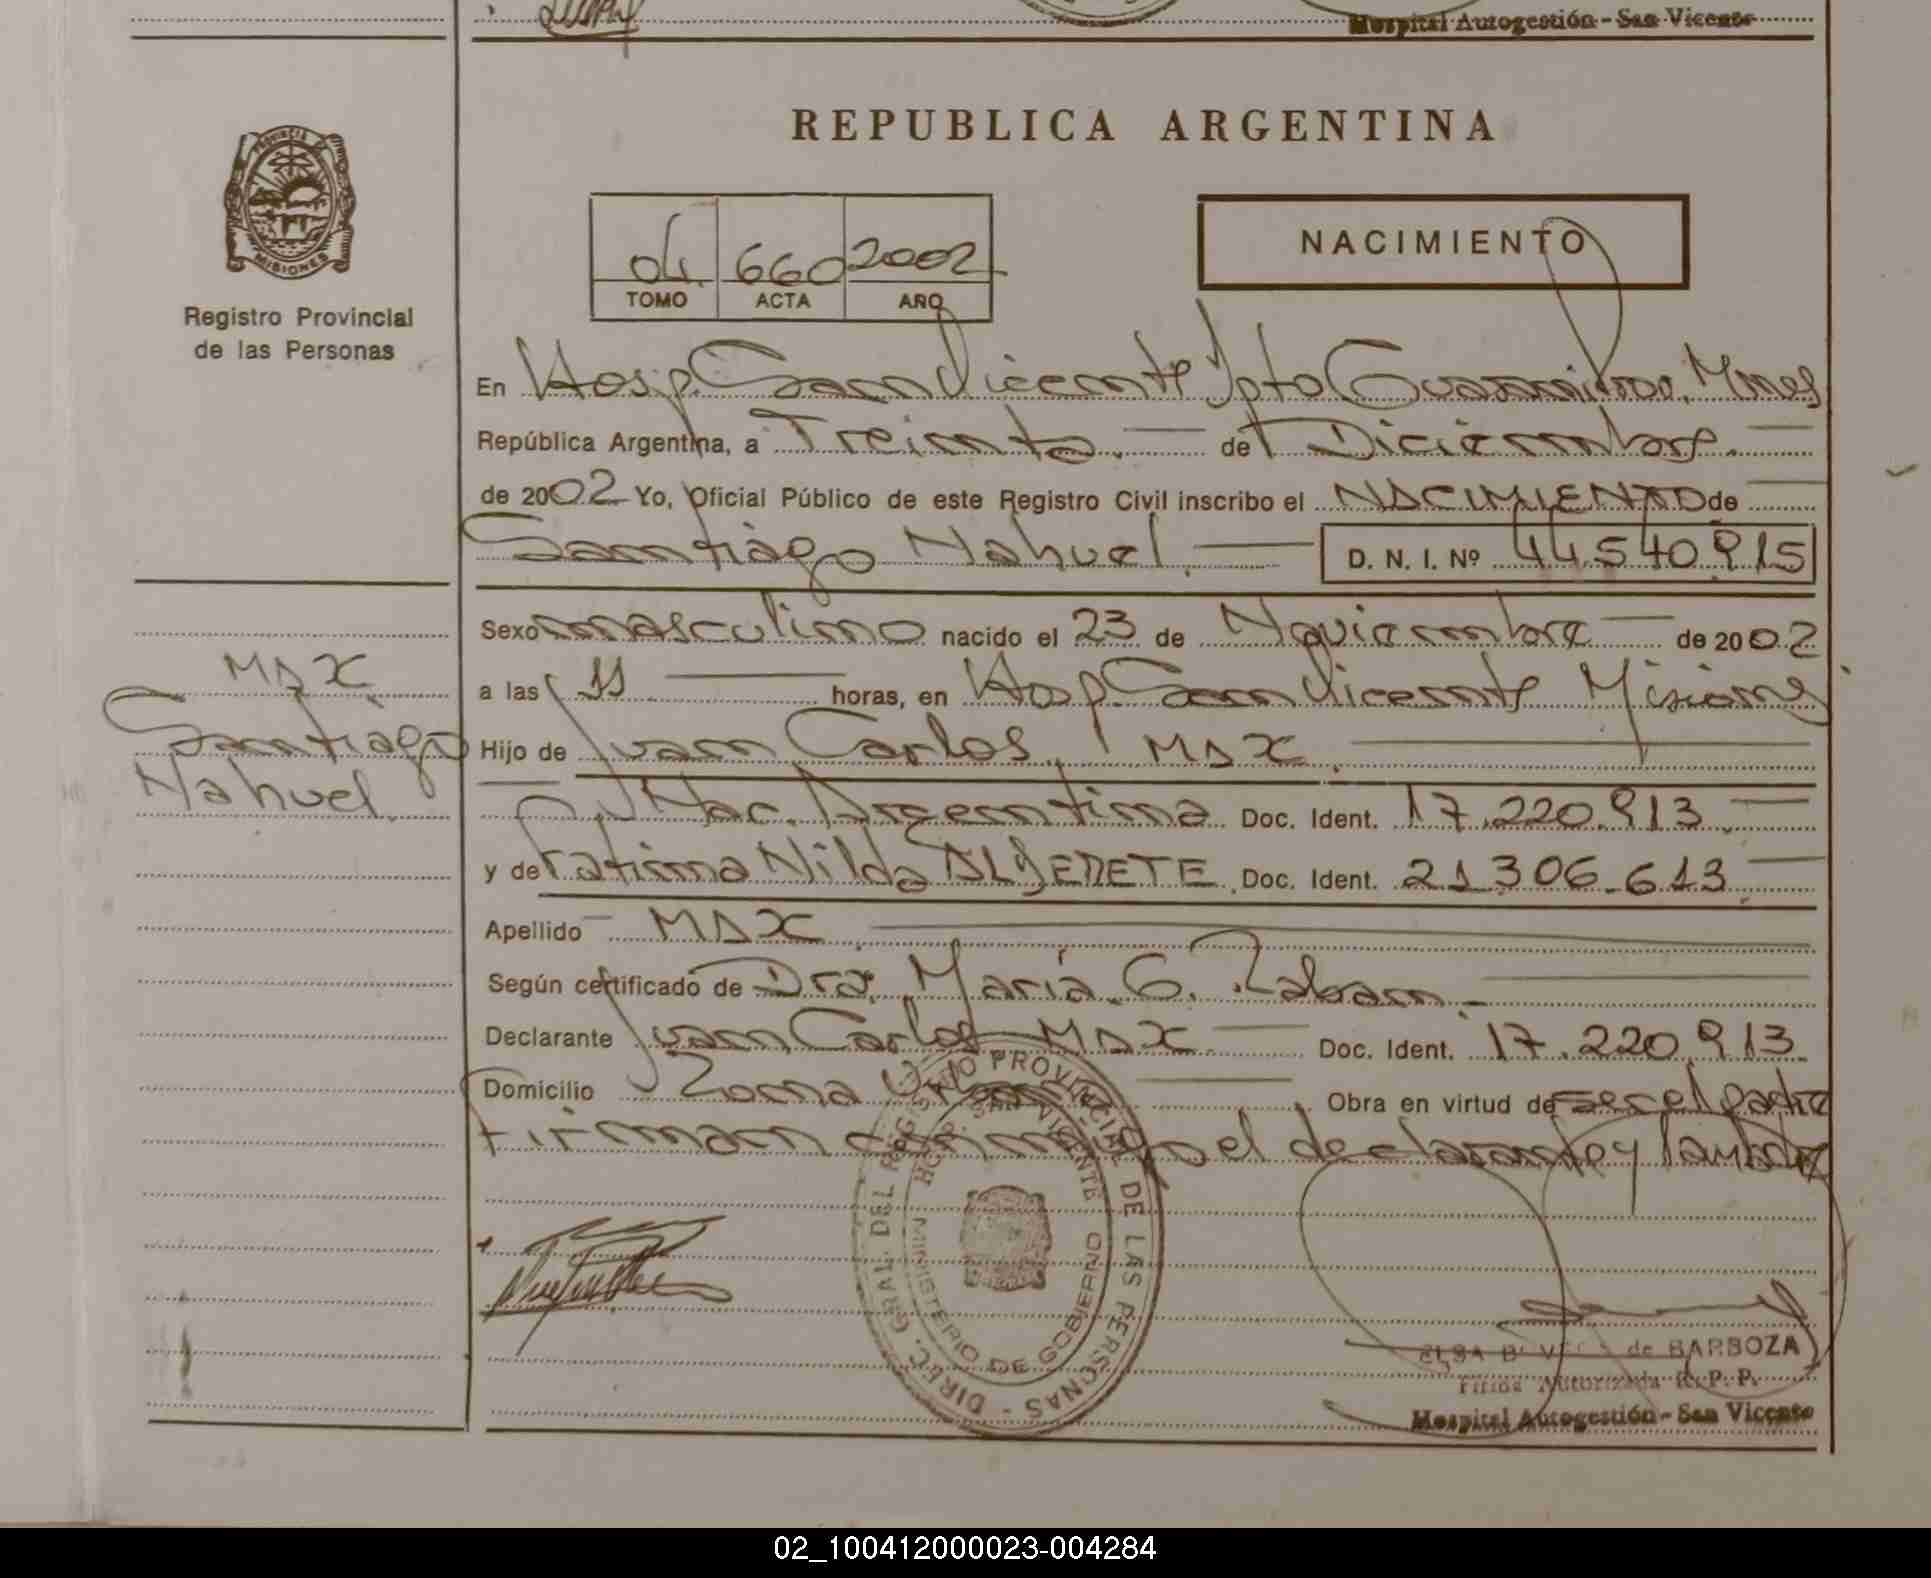 Hospital Autogestión - San Vicente
REPUBLICA ARGENTINA
PROVINCIA DE
MISIONES
Registro Provincial
de las Personas
04 660 2002
TOMO ACTA AÑO
NACIMIENTO
En Hosp. San Vicente Dpto Guaraní Prov. Mnes
República Argentina, a Treinta de Diciembre
de 2002 Yo, Oficial Público de este Registro Civil inscribo el NACIMIENTO de
Santiago Nahuel D. N. I. Nº 44.540.915
Sexo masculino nacido el 23 de Noviembre de 2002
a las 11 horas, en Hosp. San Vicente Misiones
Hijo de Juan Carlos MAX
Nac. Argentina Doc. Ident. 17.220.913
y de Fatima Nilda Doc. Ident. 21.306.613
Apellido MAX
Según certificado de Dra. María G. Zabam
Declarante Juan Carlos MAX Doc. Ident. 17.220.913
Domicilio Zona Urbana Obra en virtud de ser el padre
Firman conmigo el declarante y la madre
MAX
Santiago
Nahuel
DIREC. GRAL. DEL REGISTRO PROVINCIAL DE LAS PERSONAS
HOSP. SAN VICENTE
MINISTERIO DE GOBIERNO
de BARBOZA
Firma Autorizada R. P. P.
Hospital Autogestión - San Vicente
02_100412000023-004284